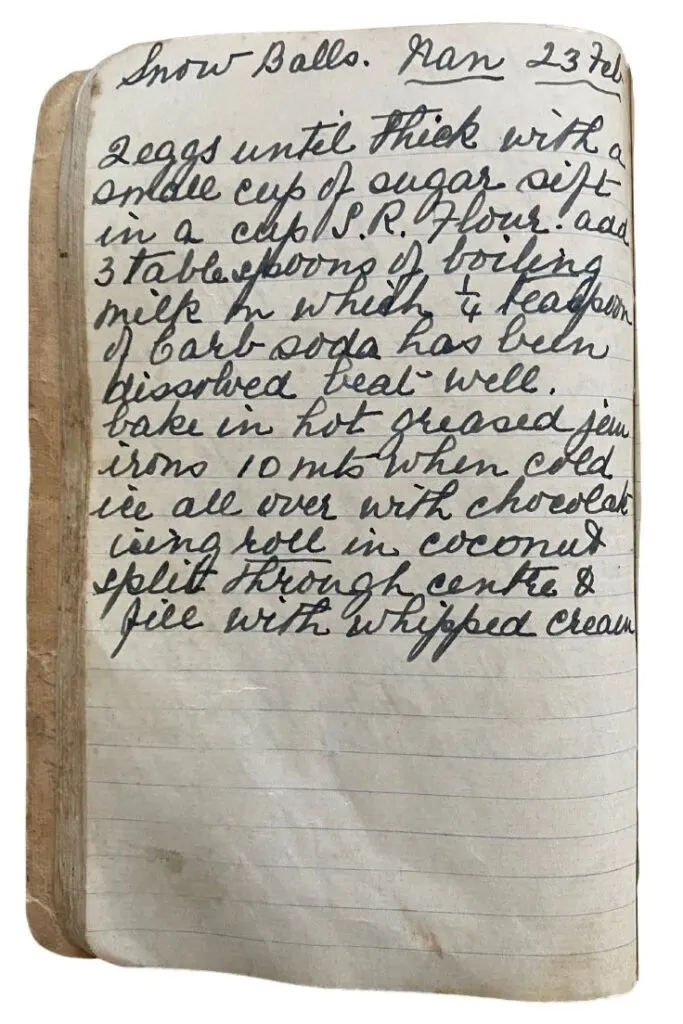 Snow Balls. Nan 23 Feb
2 eggs until thick with a
small cup of sugar sift
in a cup S.R. Flour. add
3 tablespoons of boiling
milk in which 1/4 teaspoon
of Carb soda has been
dissolved beat well.
bake in hot greased jem
irons 10 mts when cold
ice all over with chocolate
icing roll in coconut
split through centre &
fill with whipped cream